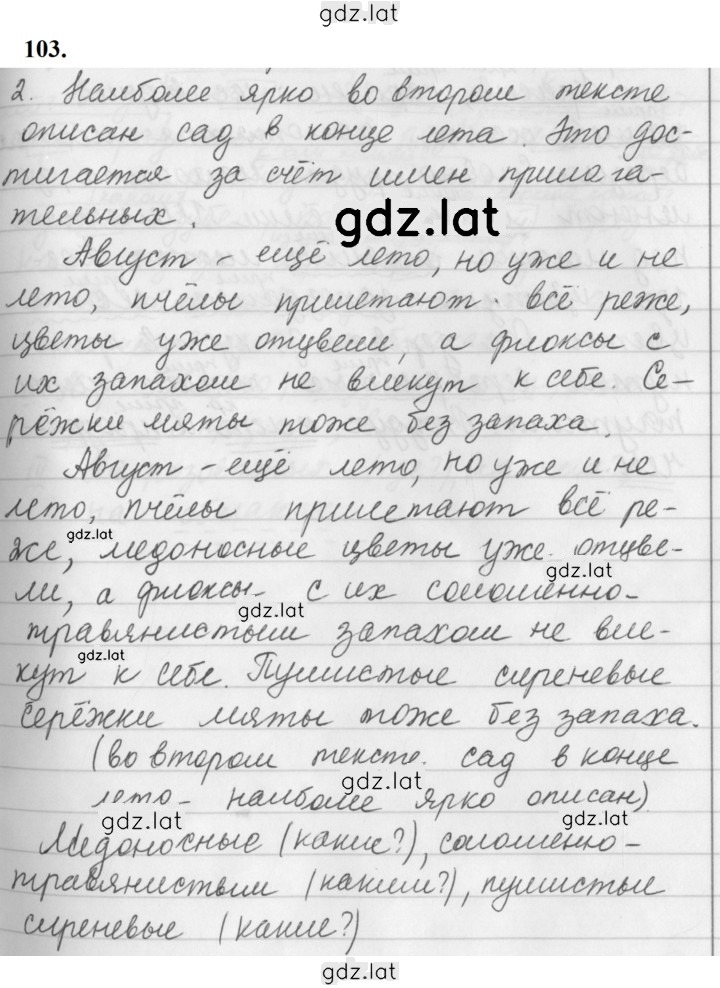 gdz.lat
103.
2. Наиболее ярко во втором тексте
описан сад в конце лета. Это дос-
тигается за счёт имен прилага-
тельных.
gdz.lat
Август - ещё лето, но уже и не
лето, пчёлы прилетают всё реже,
цветы уже отцвели, а флоксы с
их запахом не влекут к себе. Се-
рёжки мяты тоже без запаха.
Август - ещё лето, но уже и не
лето, пчёлы прилетают всё ре-
gdz.lat
же, медоносные цветы уже отцве-
gdz.lat
ли, а флоксы с их соломенно-
gdz.lat
травянистым запахом не вле-
gdz.lat
кут к себе. Пушистые сиреневые
серёжки мяты тоже без запаха.
(во втором тексте сад в конце
gdz.lat
лето - наиболее ярко описан)
gdz.lat
gdz.lat
Медоносные (какие?), соломенно-
травянистым (каким?), пушистые
сиреневые (какие?)
gdz.lat